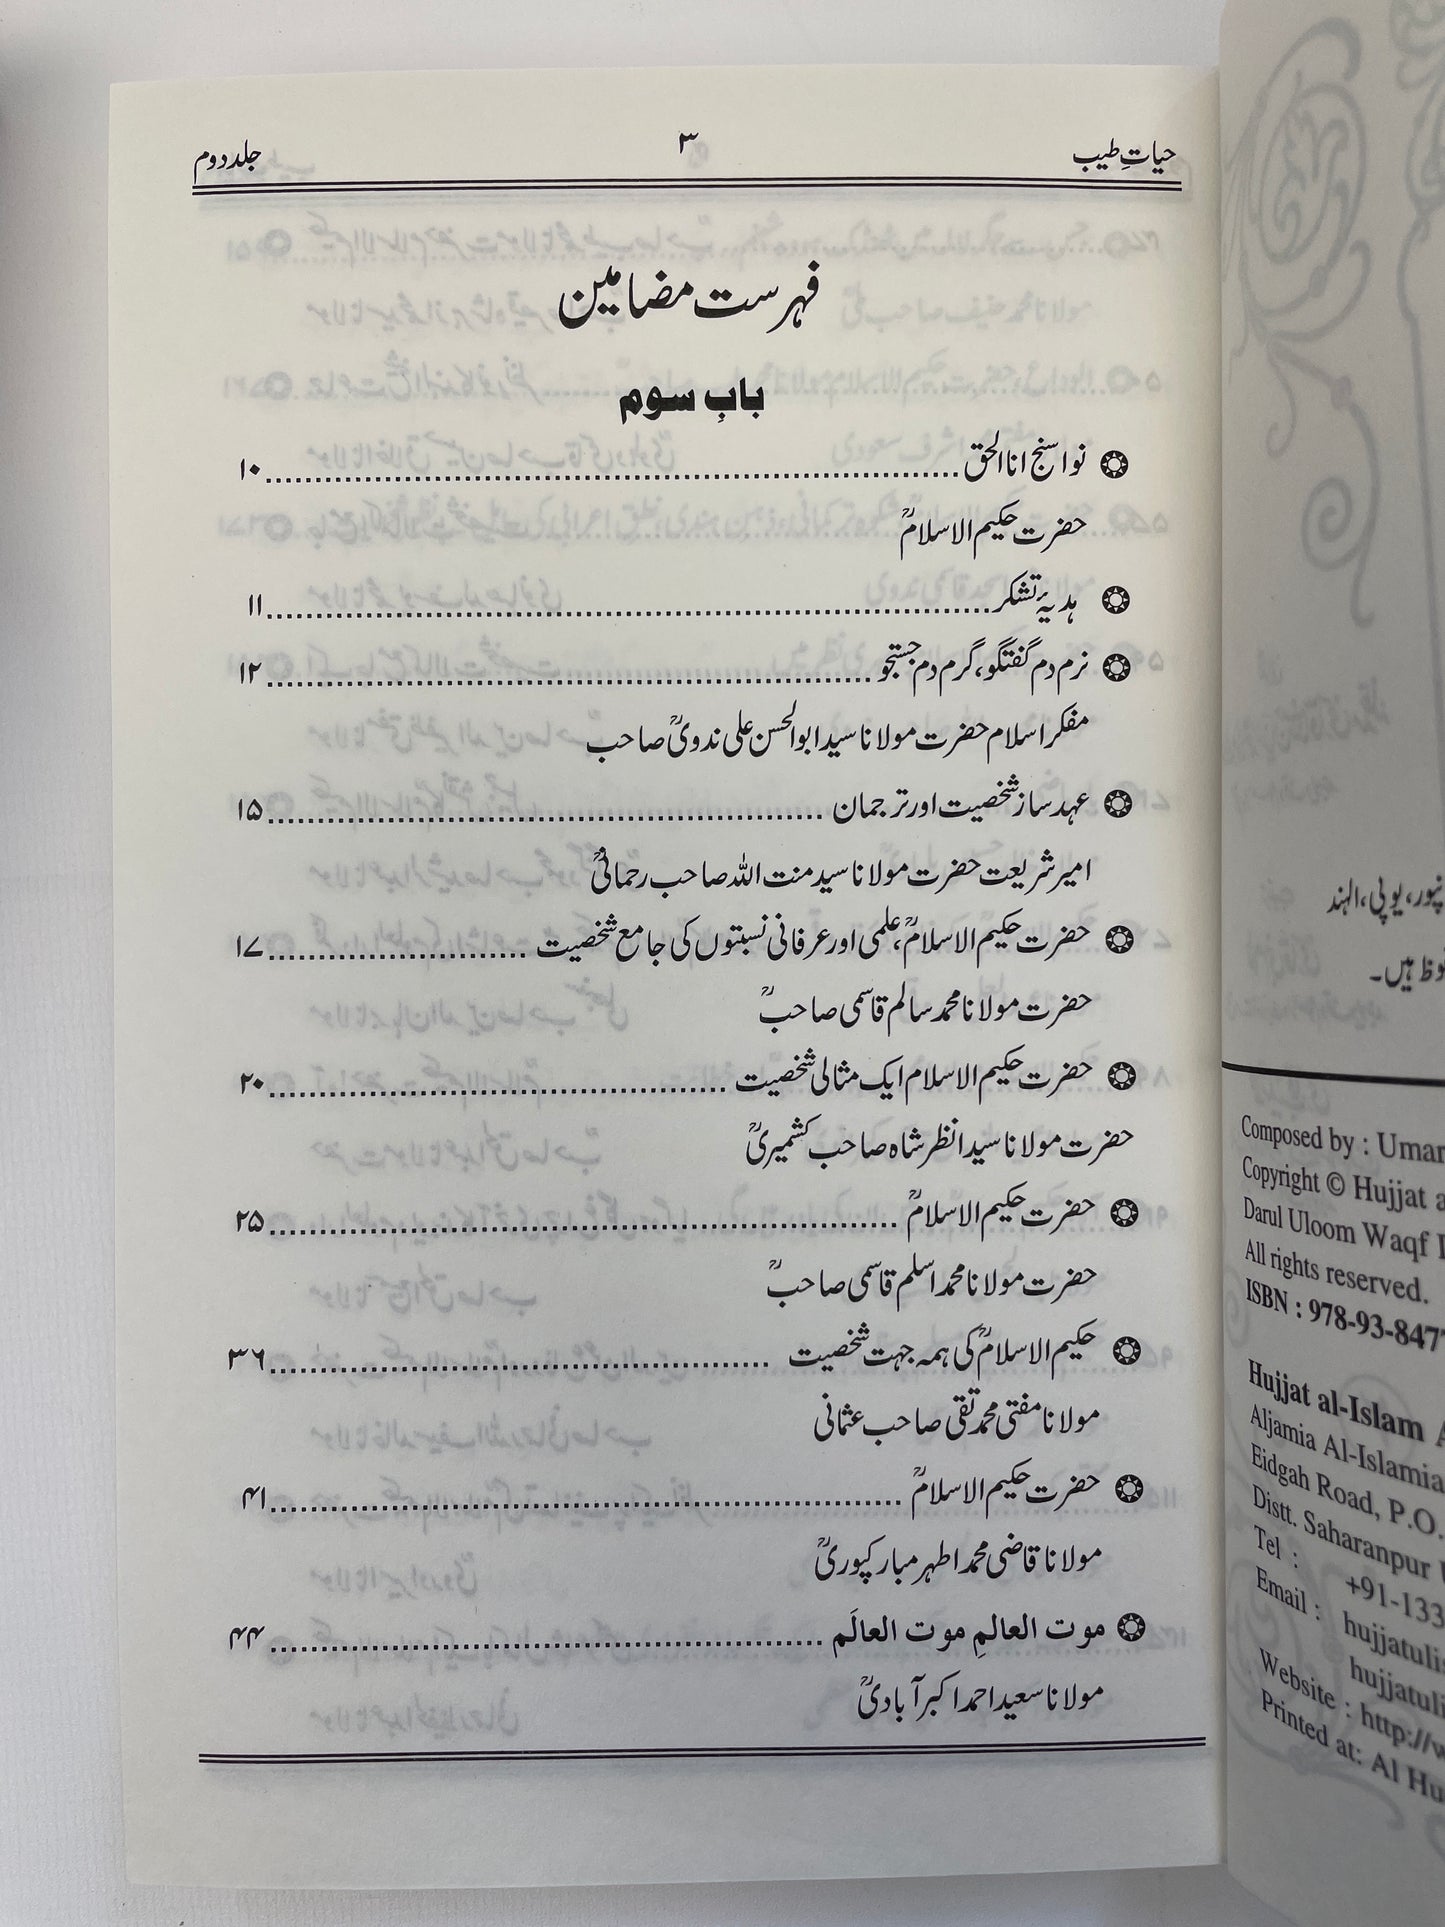 حیاتِ طیب ۳ جلد دوم
فہرست مضامین
بابِ سوم
نوا سنج انا الحق ........ ۱۰
حضرت حکیم الاسلامؒ
ہدیۂ تشکر ........ ۱۱
نرم دم گفتگو، گرم دم جستجو ........ ۱۲
مفکر اسلام حضرت مولانا سید ابوالحسن علی ندویؒ صاحب
عہد ساز شخصیت اور ترجمان ........ ۱۵
امیر شریعت حضرت مولانا سید منت اللہ صاحب رحمانیؒ
حضرت حکیم الاسلامؒ، علمی اور عرفانی نسبتوں کی جامع شخصیت ........ ۱۷
حضرت مولانا محمد سالم قاسمی صاحبؒ
حضرت حکیم الاسلام ایک مثالی شخصیت ........ ۲۰
حضرت مولانا سید انظر شاہ صاحب کشمیریؒ
حضرت حکیم الاسلامؒ ........ ۲۵
حضرت مولانا محمد اسلم قاسمی صاحبؒ
حکیم الاسلامؒ کی ہمہ جہت شخصیت ........ ۳۶
مولانا مفتی محمد تقی صاحب عثمانی
حضرت حکیم الاسلامؒ ........ ۴۱
مولانا قاضی محمد اطہر مبارکپوریؒ
موت العالمِ موت العالَم ........ ۴۴
مولانا سعید احمد اکبر آبادیؒ
نپور، یوپی، الہند
ہیں۔
Composed by : Umar
Copyright © Hujjat
Darul Uloom Waqf
All rights reserved.
ISBN : 978-93-847
Hujjat al-Islam
Aljamia Al-Islamia
Eidgah Road, P.O.
Distt. Saharanpur
Tel : +91-133
Email : hujjatuli
hujjatuli
Website : http://w
Printed at: Al Hu